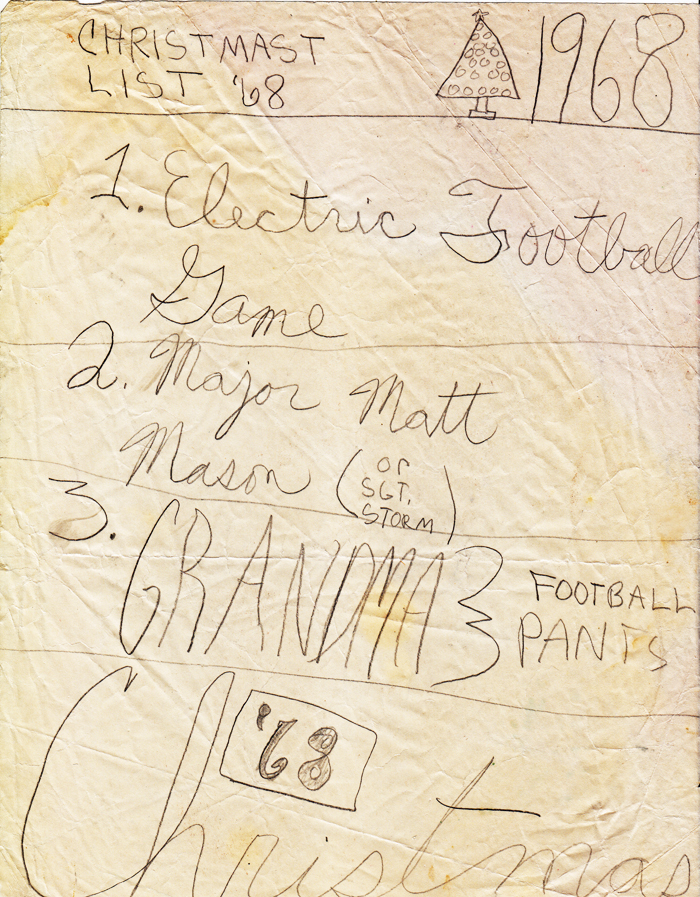 CHRISTMAST
LIST '68
1968
1. Electric Football
Game
2. Major Matt
Mason (or
SGT.
STORM)
3. GRANDMA } FOOTBALL
PANTS
'68
Christmas